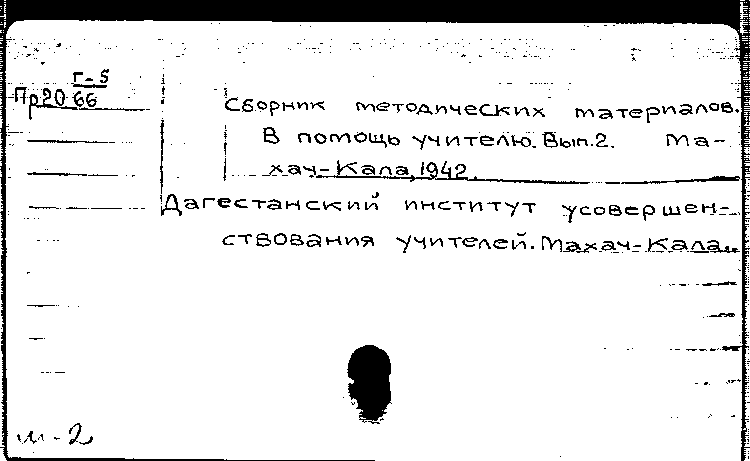 Г-5
Пр20 66
Сборник методических материалов.
В помощь учителю. Вып.2. Ма-
хач-Кала, 1942.
Дагестанский институт усовершен-
ствования учителей. Махач-Кала.
м-2